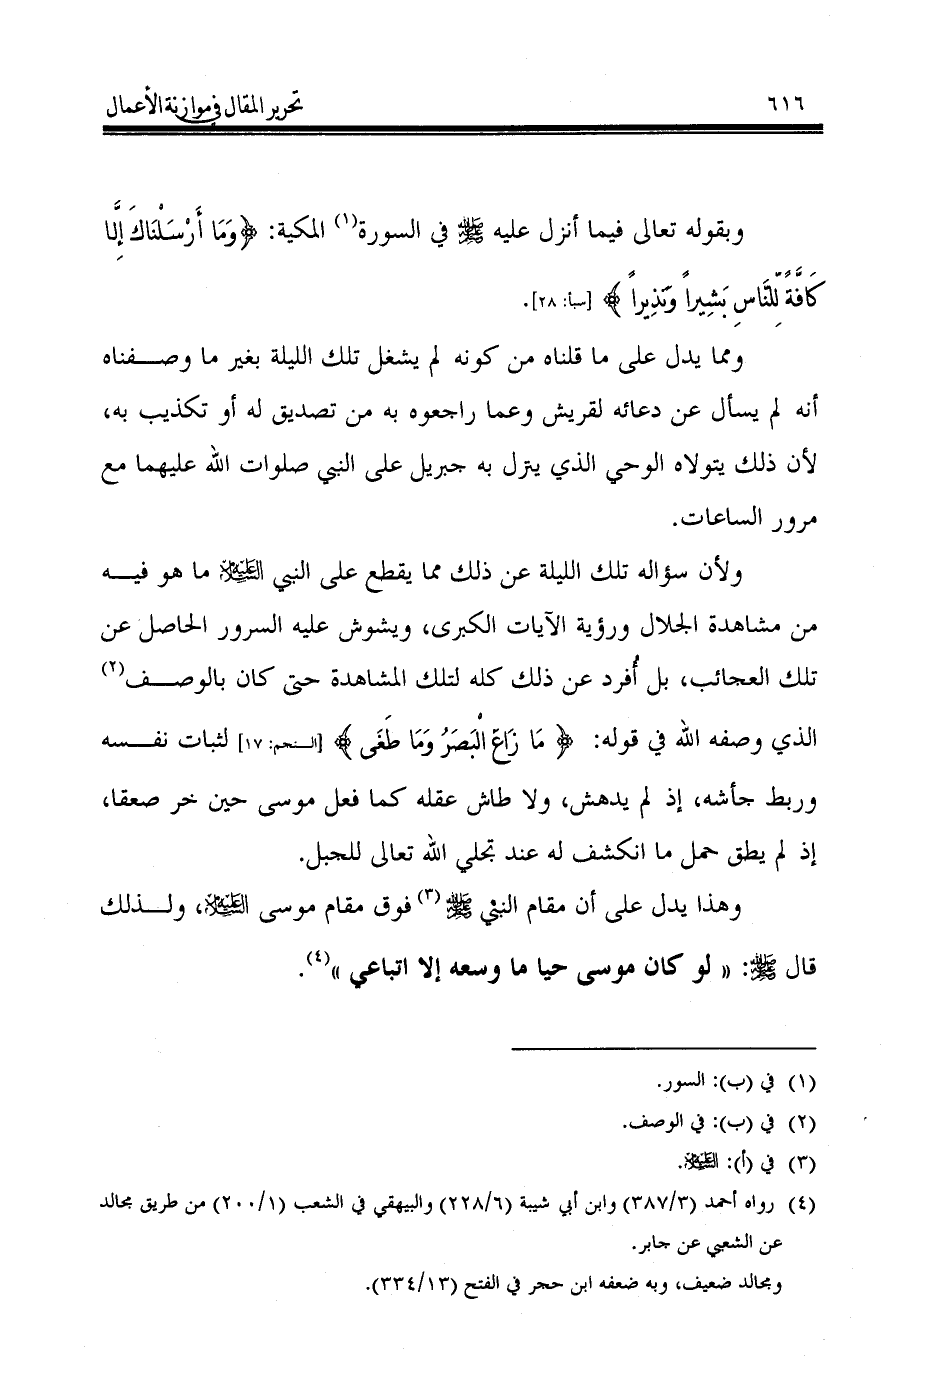 ٦١٦ تحرير المقال في موازنة الأعمال
وبقوله تعالى فيما أنزل عليه ﷺ في السورة(١) المكية: ﴿وَمَا أَرْسَلْنَاكَ إِلَّا
كَافَّةً لِّلنَّاسِ بَشِيراً وَنَذِيراً ﴾ [سبأ: ٢٨].
ومما يدل على ما قلناه من كونه لم يشغل تلك الليلة بغير ما وصفناه
أنه لم يسأل عن دعائه لقريش وعما راجعوه به من تصديق له أو تكذيب به،
لأن ذلك يتولاه الوحي الذي ينزل به جبريل على النبي صلوات الله عليهما مع
مرور الساعات.
ولأن سؤاله تلك الليلة عن ذلك مما يقطع على النبي العَلَيْهِ السَّلَام ما هو فيه
من مشاهدة الجلال ورؤية الآيات الكبرى، ويشوش عليه السرور الحاصل عن
تلك العجائب، بل أُفرد عن ذلك كله لتلك المشاهدة حتى كان بالوصف(٢)
الذي وصفه الله في قوله: ﴿ مَا زَاغَ الْبَصَرُ وَمَا طَغَى ﴾ [النجم: ١٧] لثبات نفسه
وربط جأشه، إذ لم يدهش، ولا طاش عقله كما فعل موسى حين خر صعقا،
إذ لم يطق حمل ما انكشف له عند تجلي الله تعالى للجبل.
وهذا يدل على أن مقام النبي ﷺ(٣) فوق مقام موسى عليه السلام، ولذلك
قال ﷺ: « لو كان موسى حيا ما وسعه إلا اتباعي »(٤).
(١) في (ب): السور.
(٢) في (ب): في الوصف.
(٣) في (أ): عليه السلام.
(٤) رواه أحمد (٣٨٧/٣) وابن أبي شيبة (٢٢٨/٦) والبيهقي في الشعب (٢٠٠/١) من طريق مجالد
عن الشعبي عن جابر.
ومجالد ضعيف، وبه ضعفه ابن حجر في الفتح (٣٣٤/١٣).